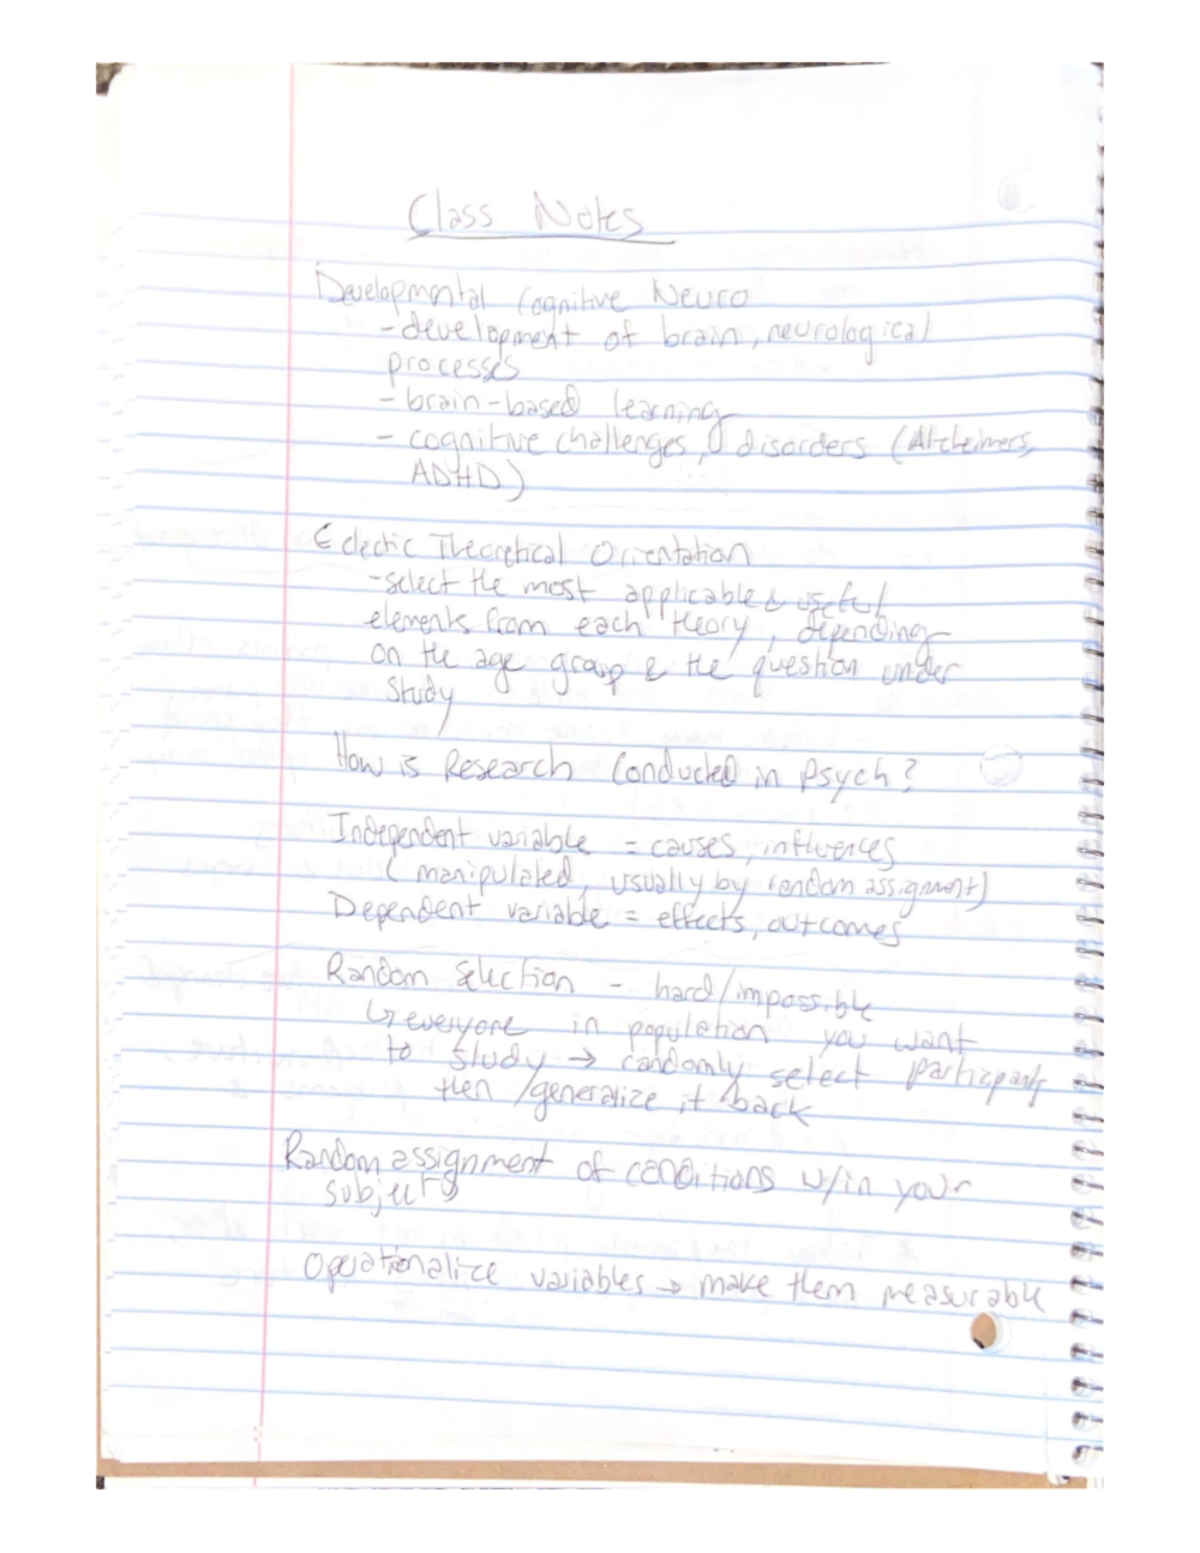 Class Notes
Developmental Cognitive Neuro
- development of brain, neurological
processes
- brain-based learning
- cognitive challenges, disorders (Alzheimers,
ADHD)
Eclectic Theoretical Orientation
- select the most applicable & useful
elements from each theory, depending
on the age group & the question under
study
How is Research Conducted in Psych?
Independent variable = causes, influences
( manipulated, usually by random assignment)
Dependent variable = effects, outcomes
Random Selection - hard/impossible
↳ everyone in population you want
to study → randomly select participants
then /generalize it back
Random assignment of conditions w/in your
subjects
Operationalize variables → make them measurable